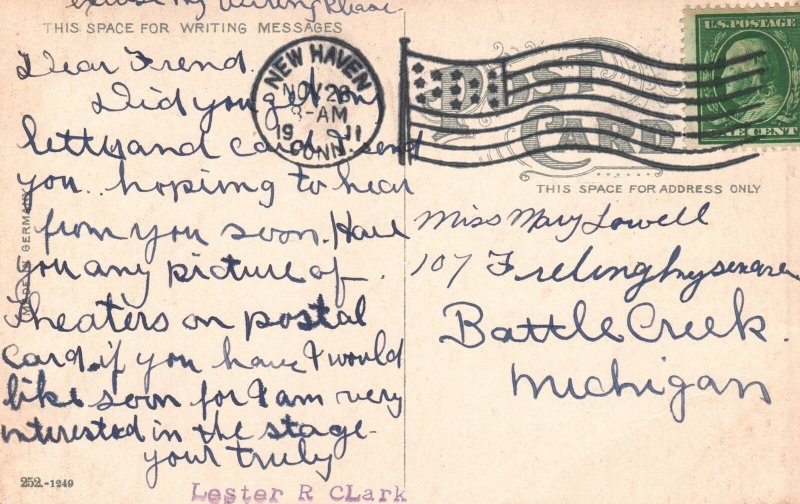 excuse my writing Please
THIS SPACE FOR WRITING MESSAGES
Dear Frend.
Did you get my
letty and card I send
you.. hopimg to hear
from you soon. Have
you any picture of
Theaters on postal
Card. if you have I would
like soon for I am very
interested in the stage
your truly
Lester R CLark
252.-1249
MADE IN GERMANY
NEW HAVEN
NOV 28
8-AM
19 11
CONN.
POST
CARD
THIS SPACE FOR ADDRESS ONLY
U.S. POSTAGE
ONE CENT
Miss Mary Lowell
107 Frelinghuysen are
Battle Creek.
Michigan